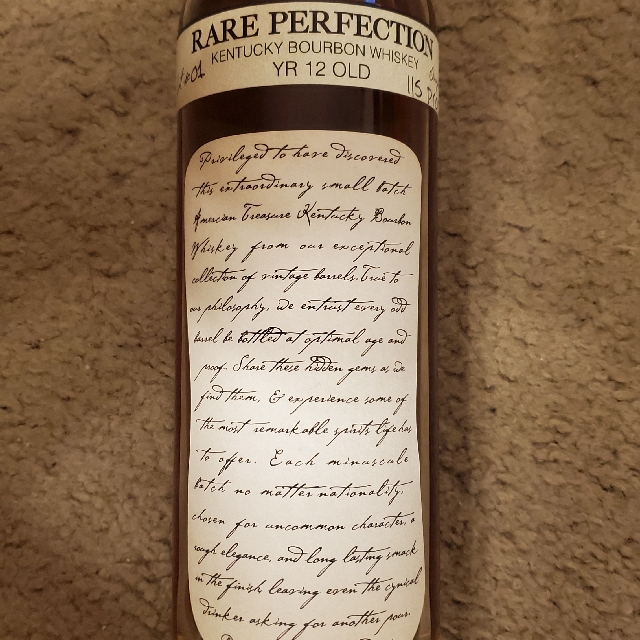 RARE PERFECTION
KENTUCKY BOURBON WHISKEY
#01 YR 12 OLD 115
Privileged to have discovered
this extraordinary small batch
Amercian Treasure Kentucky Bourbon
Whiskey from our exceptional
collection of vintage barrels. True to
our philosophy, we entrust every odd
barrel be bottled at optimal age and
proof. Share these hidden gems as we
find them, & experience some of
the most remarkable spirits life has
to offer. Each minuscule
batch no matter nationality,
chosen for uncommon character, a
rough elegance, and long lasting smack
in the finish leaving even the cynical
drinker asking for another pour.